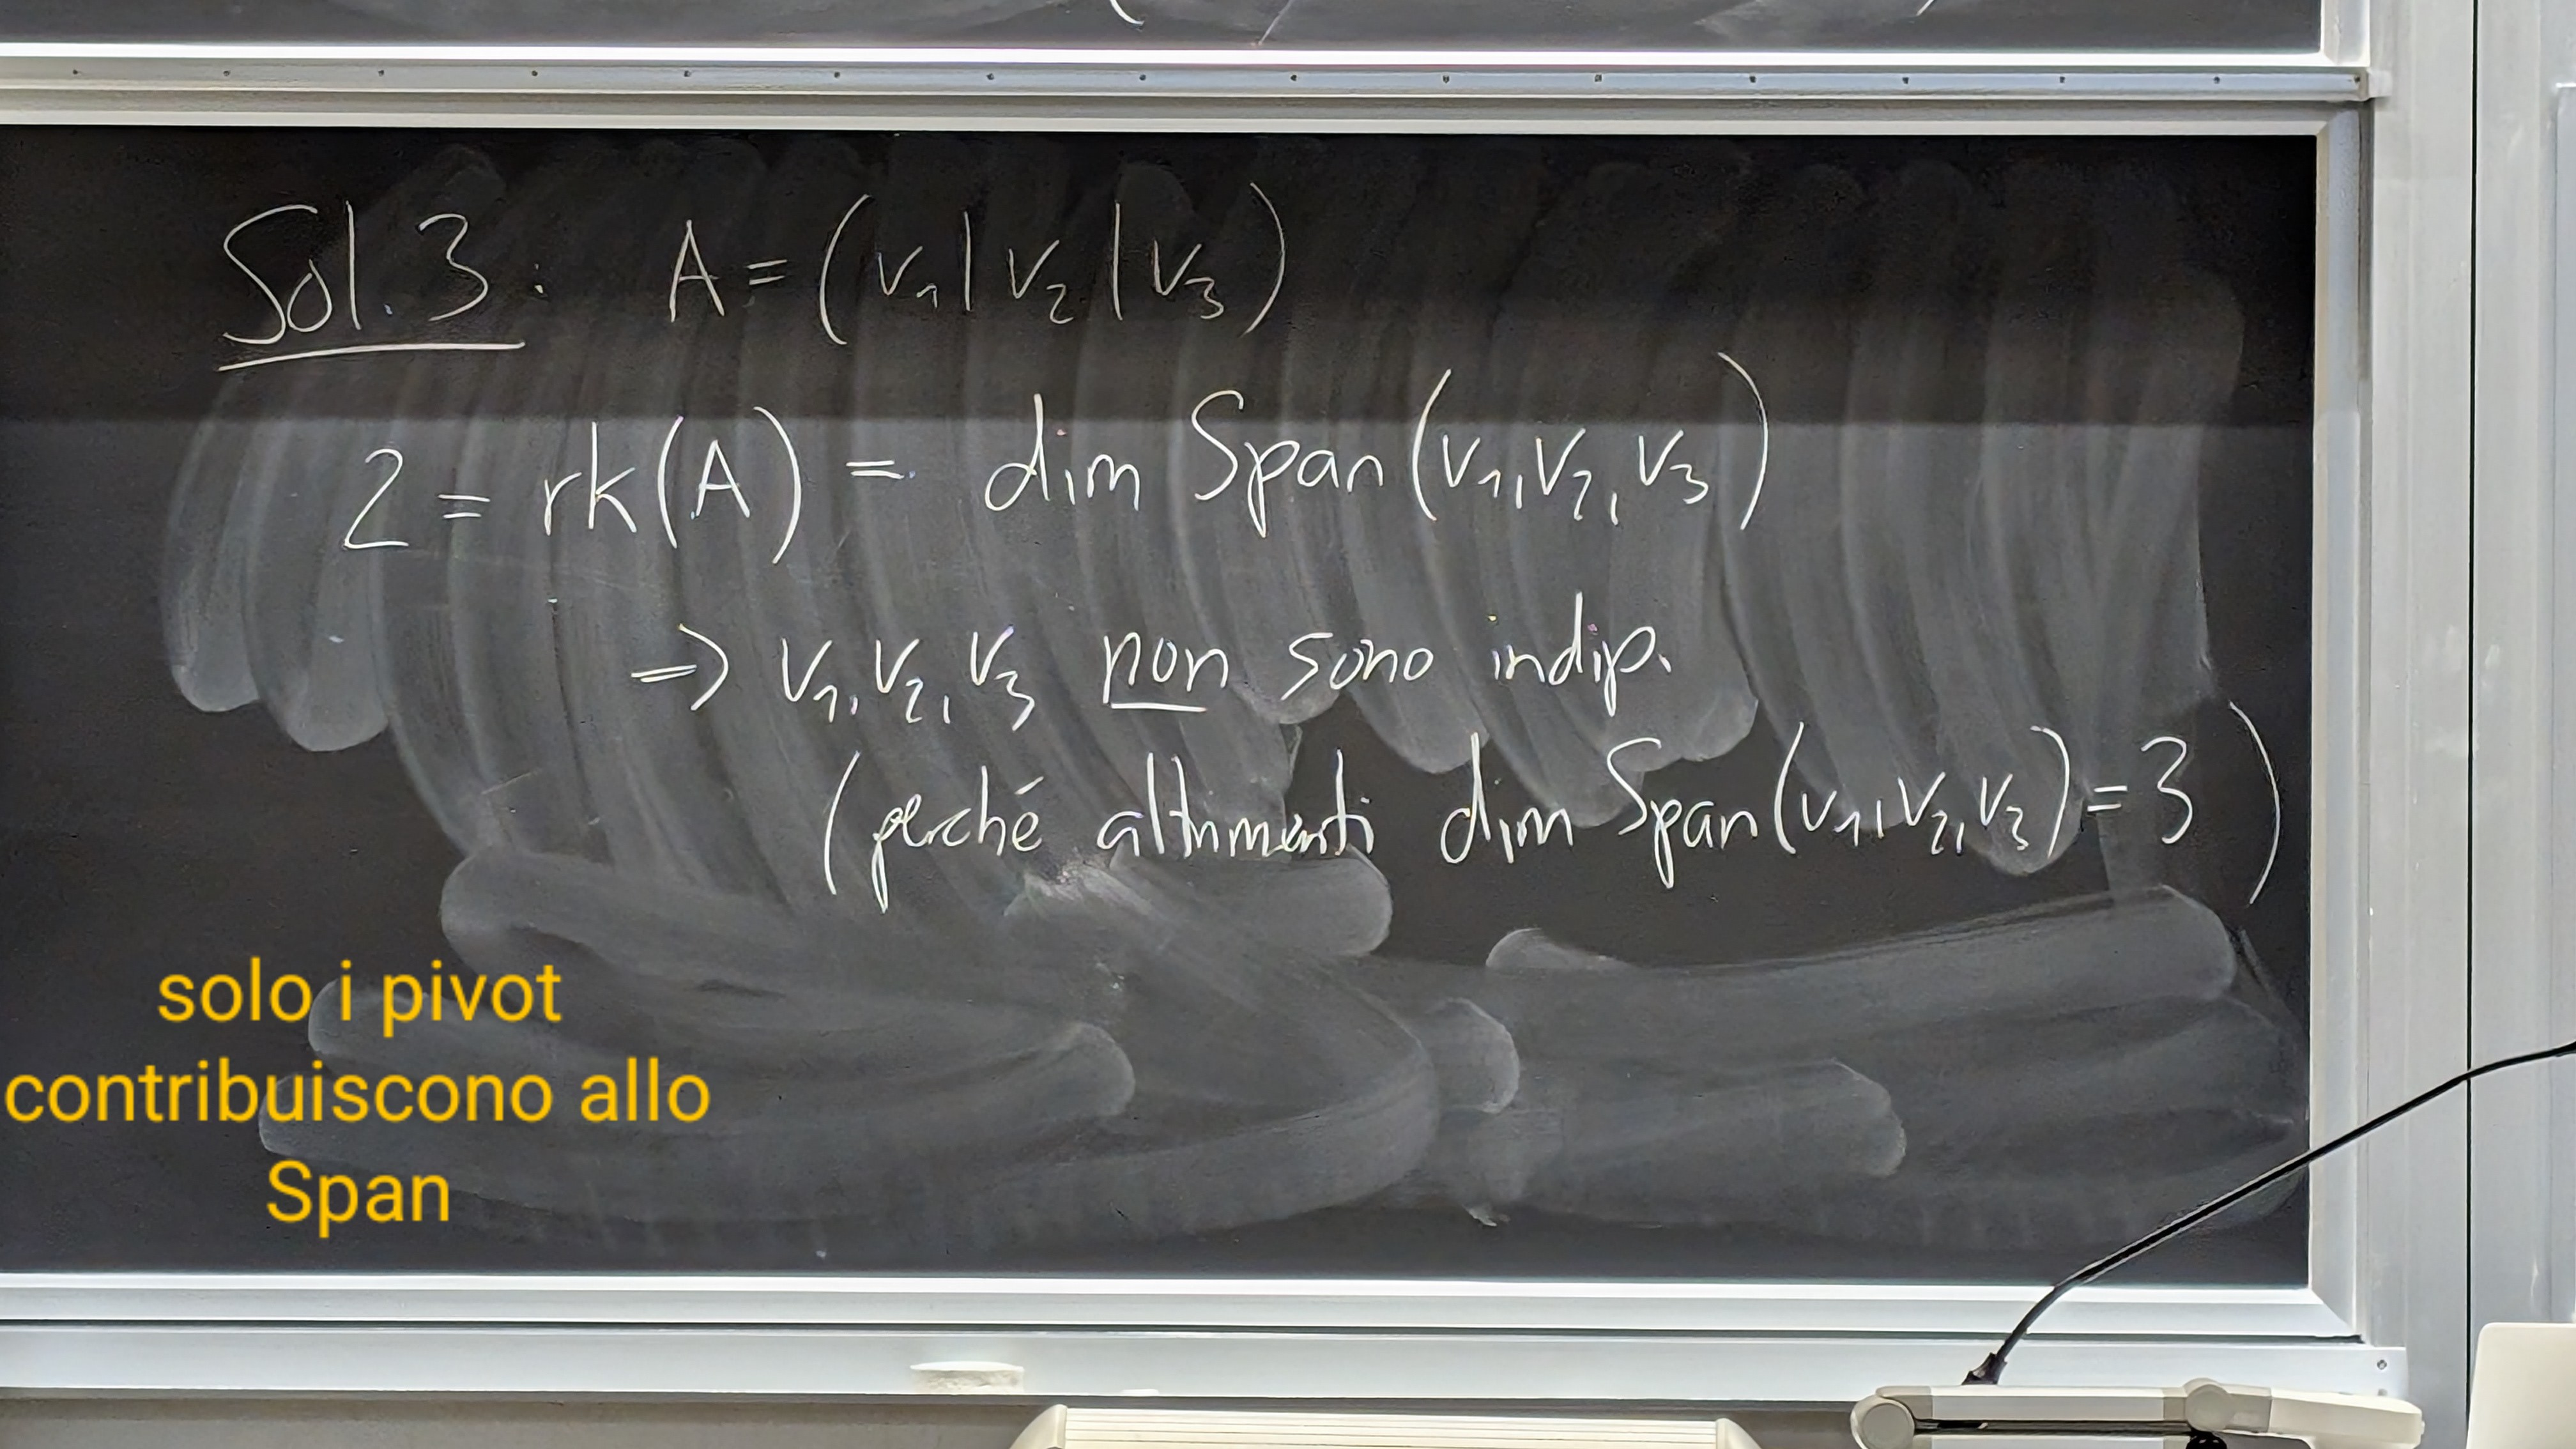 Sol. 3: A = (v₁ | v₂ | v₃)
2 = rk(A) = dim Span(v₁, v₂, v₃)
=> v₁, v₂, v₃ non sono indip.
(perché altrimenti dim Span(v₁, v₂, v₃) = 3)
solo i pivot
contribuiscono allo
Span